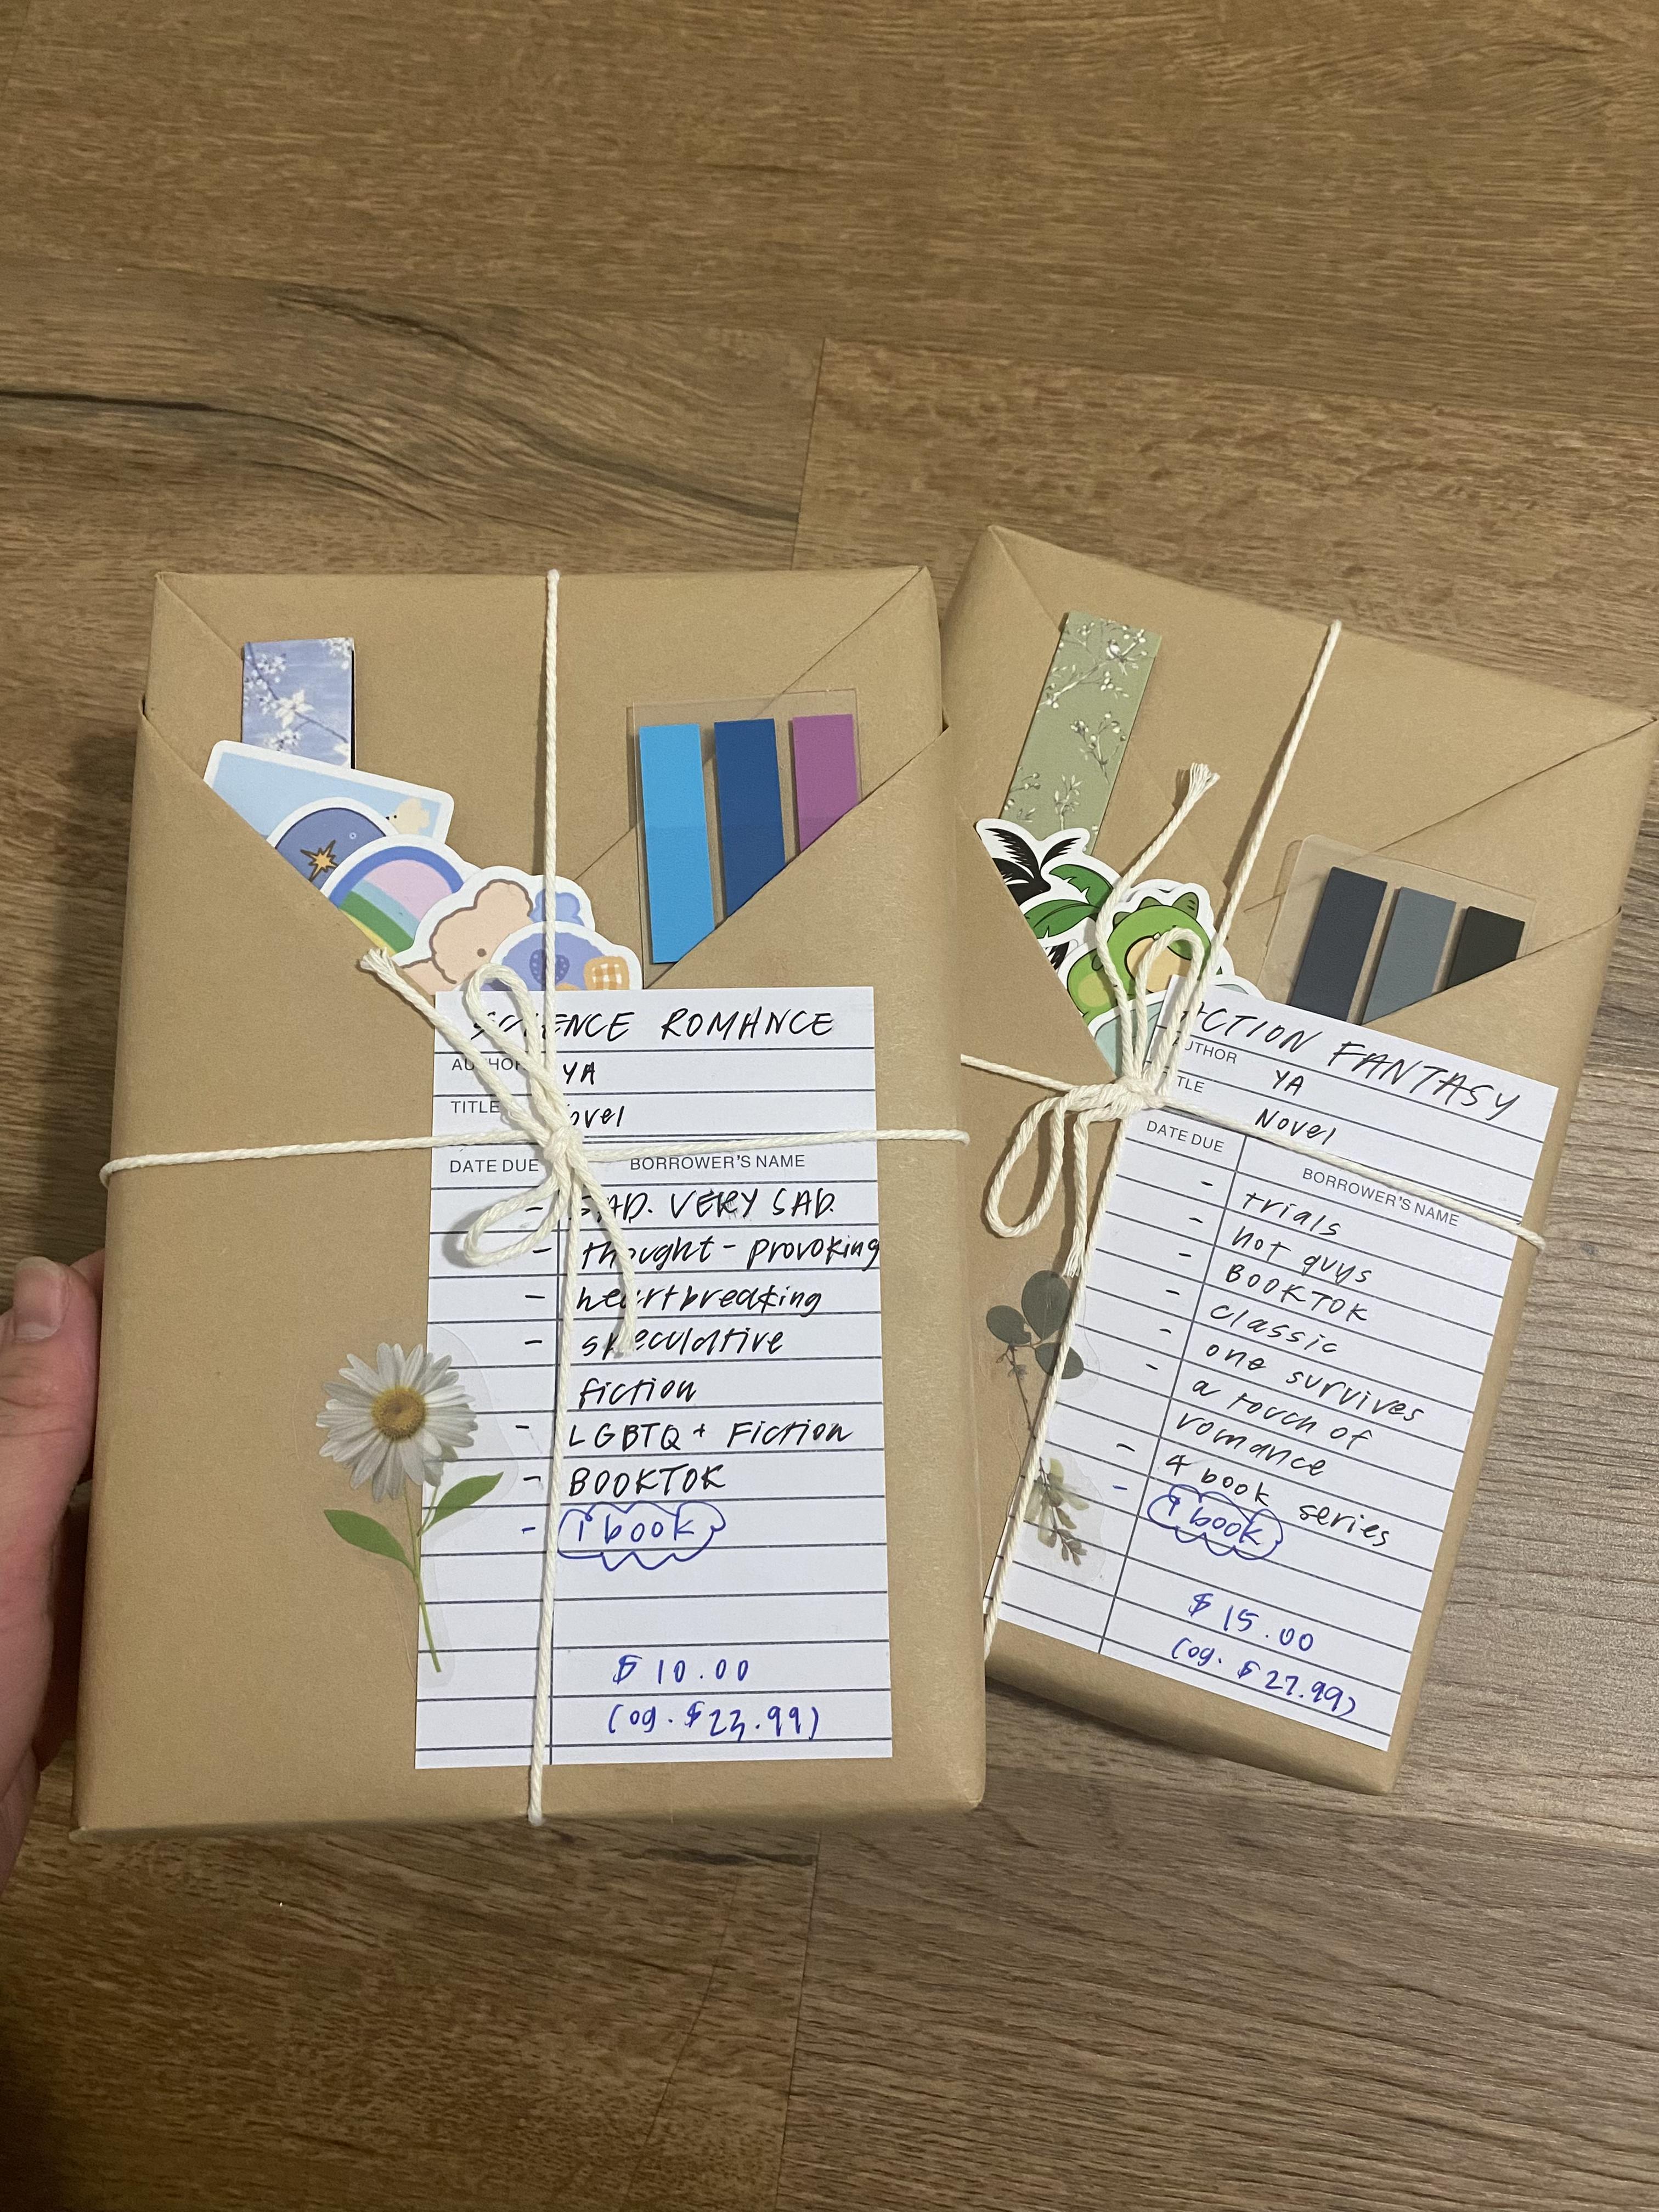 SCIENCE ROMANCE
AUTHOR YA
TITLE Novel
DATE DUE BORROWER'S NAME
- SAD. VERY SAD.
- thought-provoking
- heartbreaking
- speculative
fiction
- LGBTQ+ Fiction
- BOOKTOK
- 1 book
$10.00
(og. $23.99)
ACTION FANTASY
AUTHOR YA
TITLE Novel
DATE DUE BORROWER'S NAME
- trials
- hot guys
- BOOKTOK
- classic
- one survives
- a touch of
romance
- 4 book series
- 1 book
$15.00
(og. $27.99)